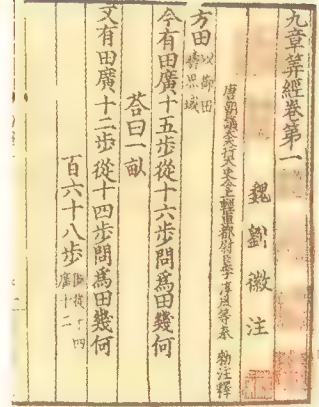 九章筭經卷第一
魏劉徽注
唐朝議大夫行太史令上輕車都尉臣李淳風等奉 勑注釋
方田以御田疇界域
今有田廣十五步從十六步問爲田幾何
荅曰一畝
又有田廣十二步從十四步問爲田幾何
百六十八步